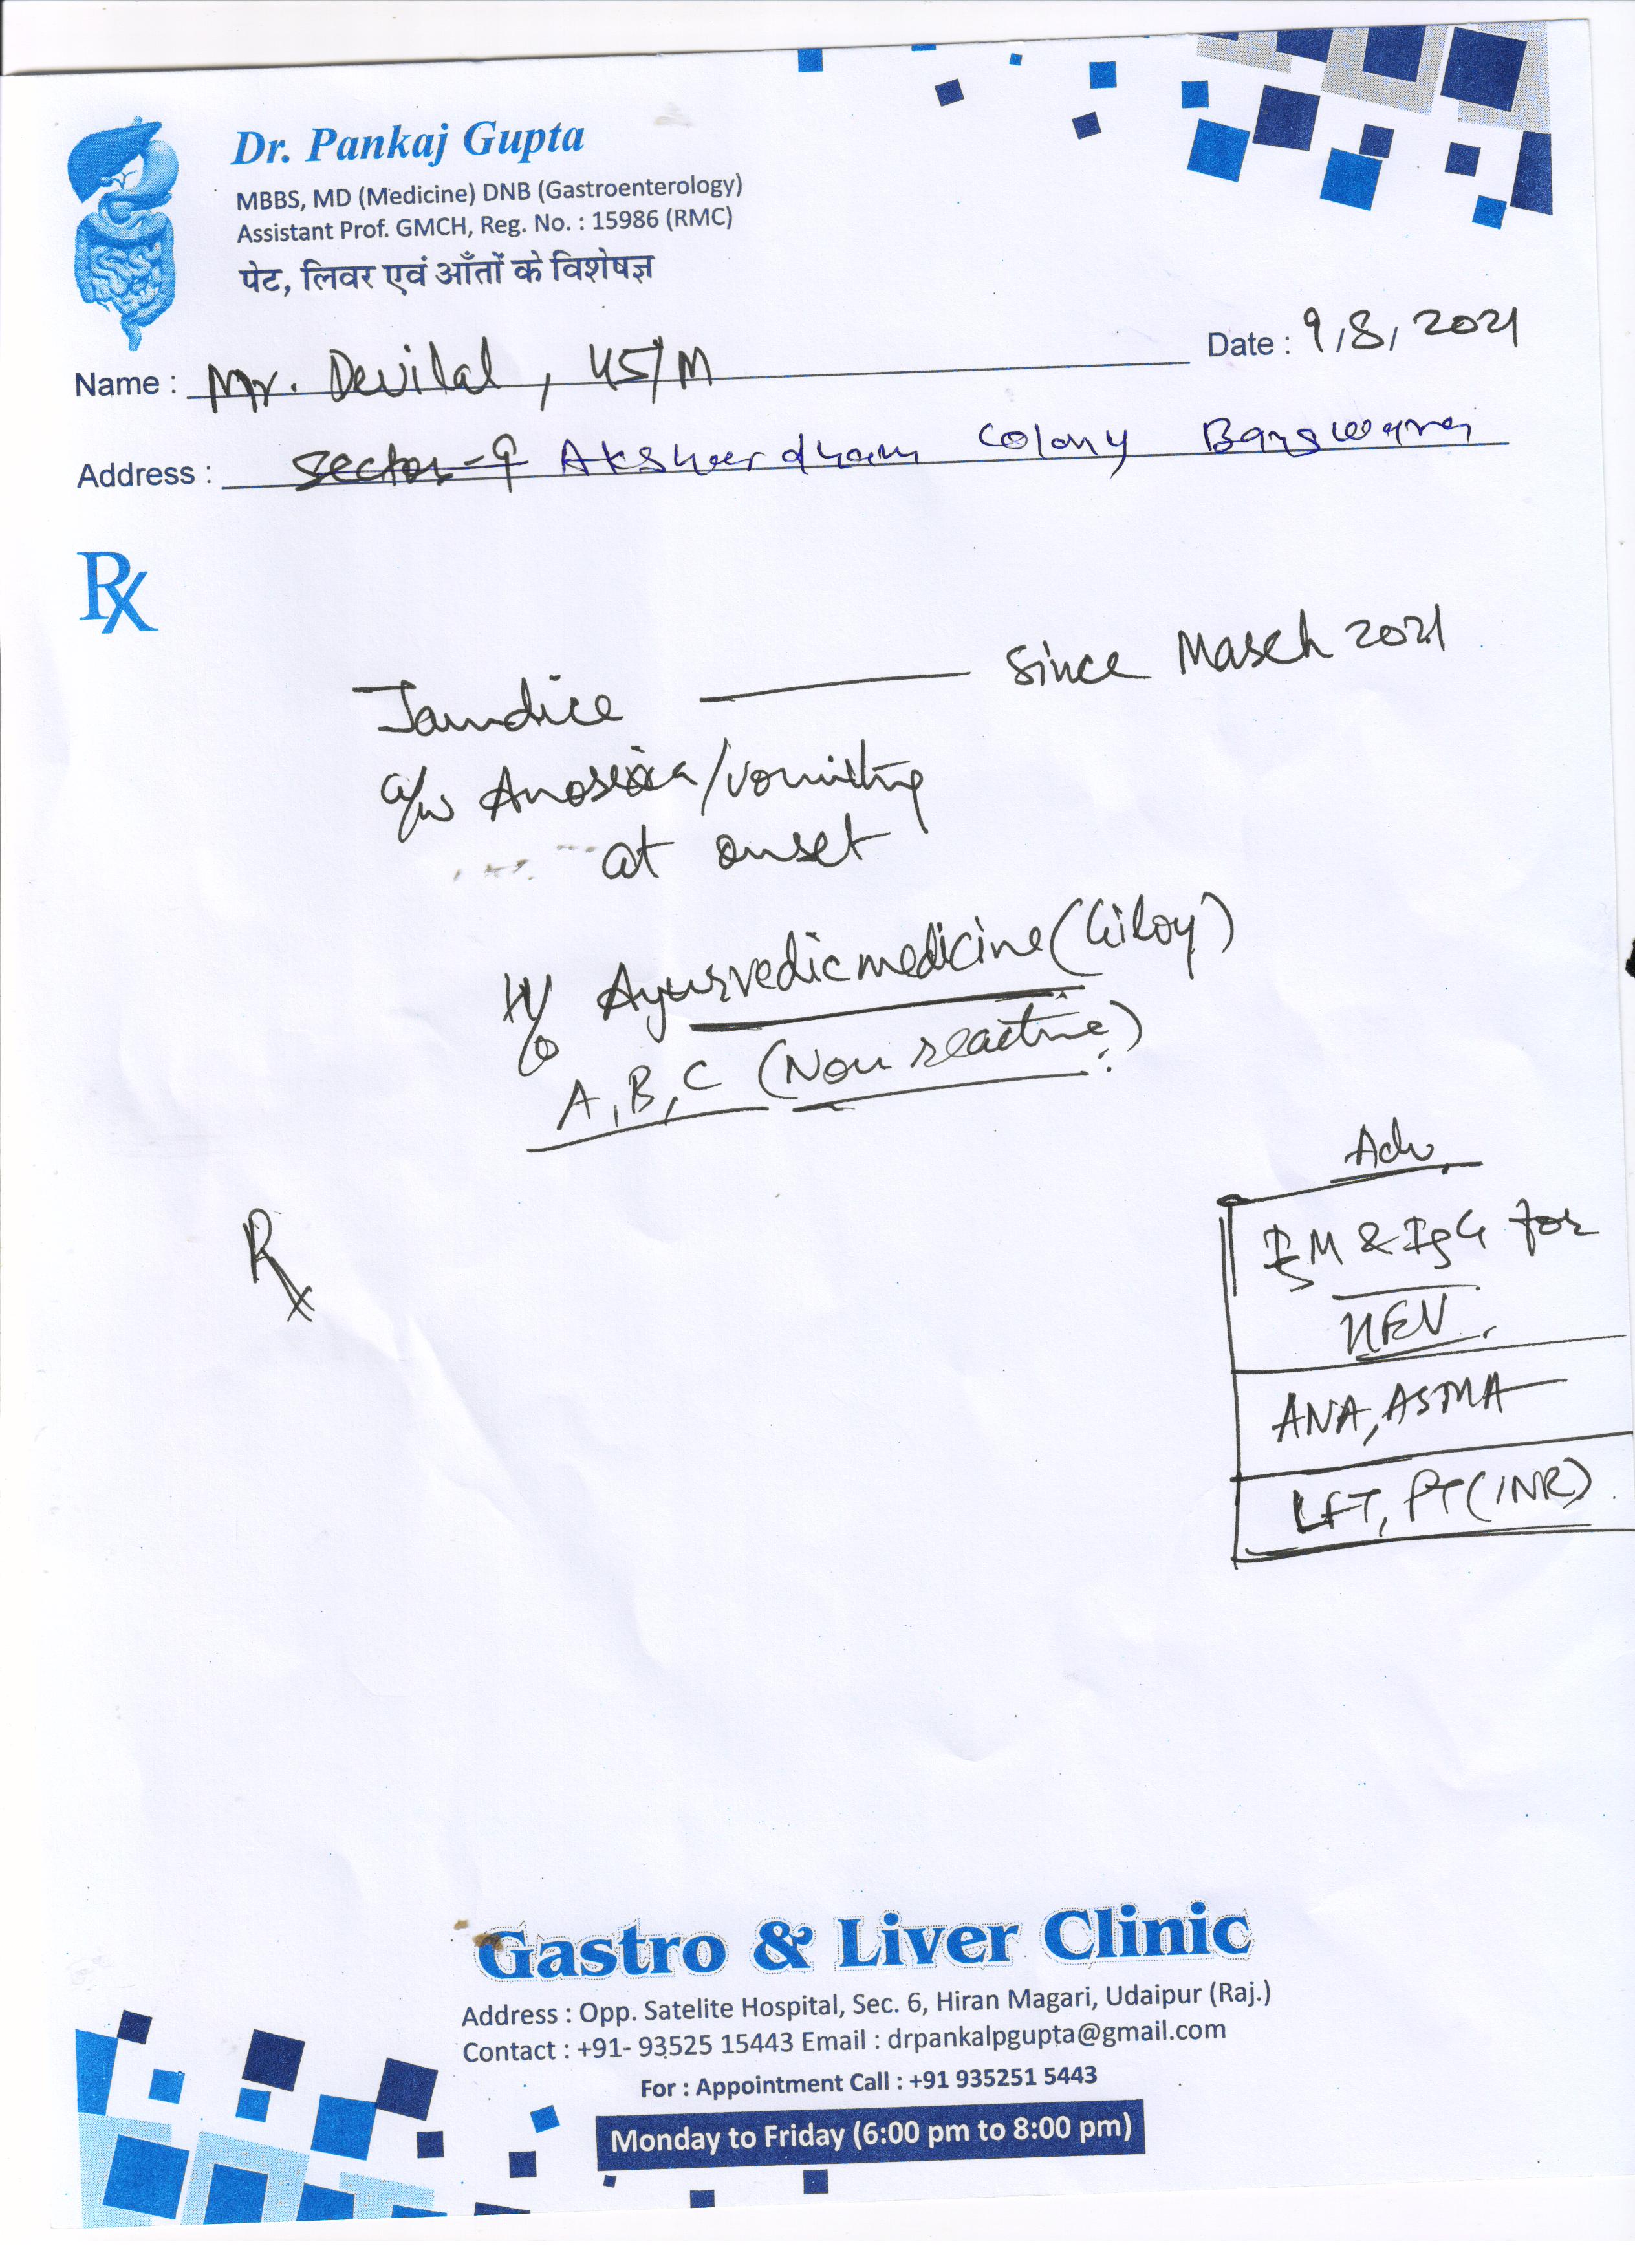 Dr. Pankaj Gupta
MBBS, MD (Medicine) DNB (Gastroenterology)
Assistant Prof. GMCH, Reg. No. : 15986 (RMC)
पेट, लिवर एवं आँतों के विशेषज्ञ
Date : 9/8/2021
Name : Mr. Devilal, 45/M
Address : sector-9 Aksheerdham Colony Banswara
Rx
Jaundice —— Since March 2021
a/w Anorexia/vomiting
at onset
H/o Ayurvedic medicine (Giloy)
A, B, C (Non reactive)
Adv.
Rx
IgM & IgG for
HEV.
ANA, ASMA
LFT, PT (INR)
Gastro & Liver Clinic
Address : Opp. Satelite Hospital, Sec. 6, Hiran Magari, Udaipur (Raj.)
Contact : +91- 93525 15443 Email : drpankalpgupta@gmail.com
For : Appointment Call : +91 935251 5443
Monday to Friday (6:00 pm to 8:00 pm)